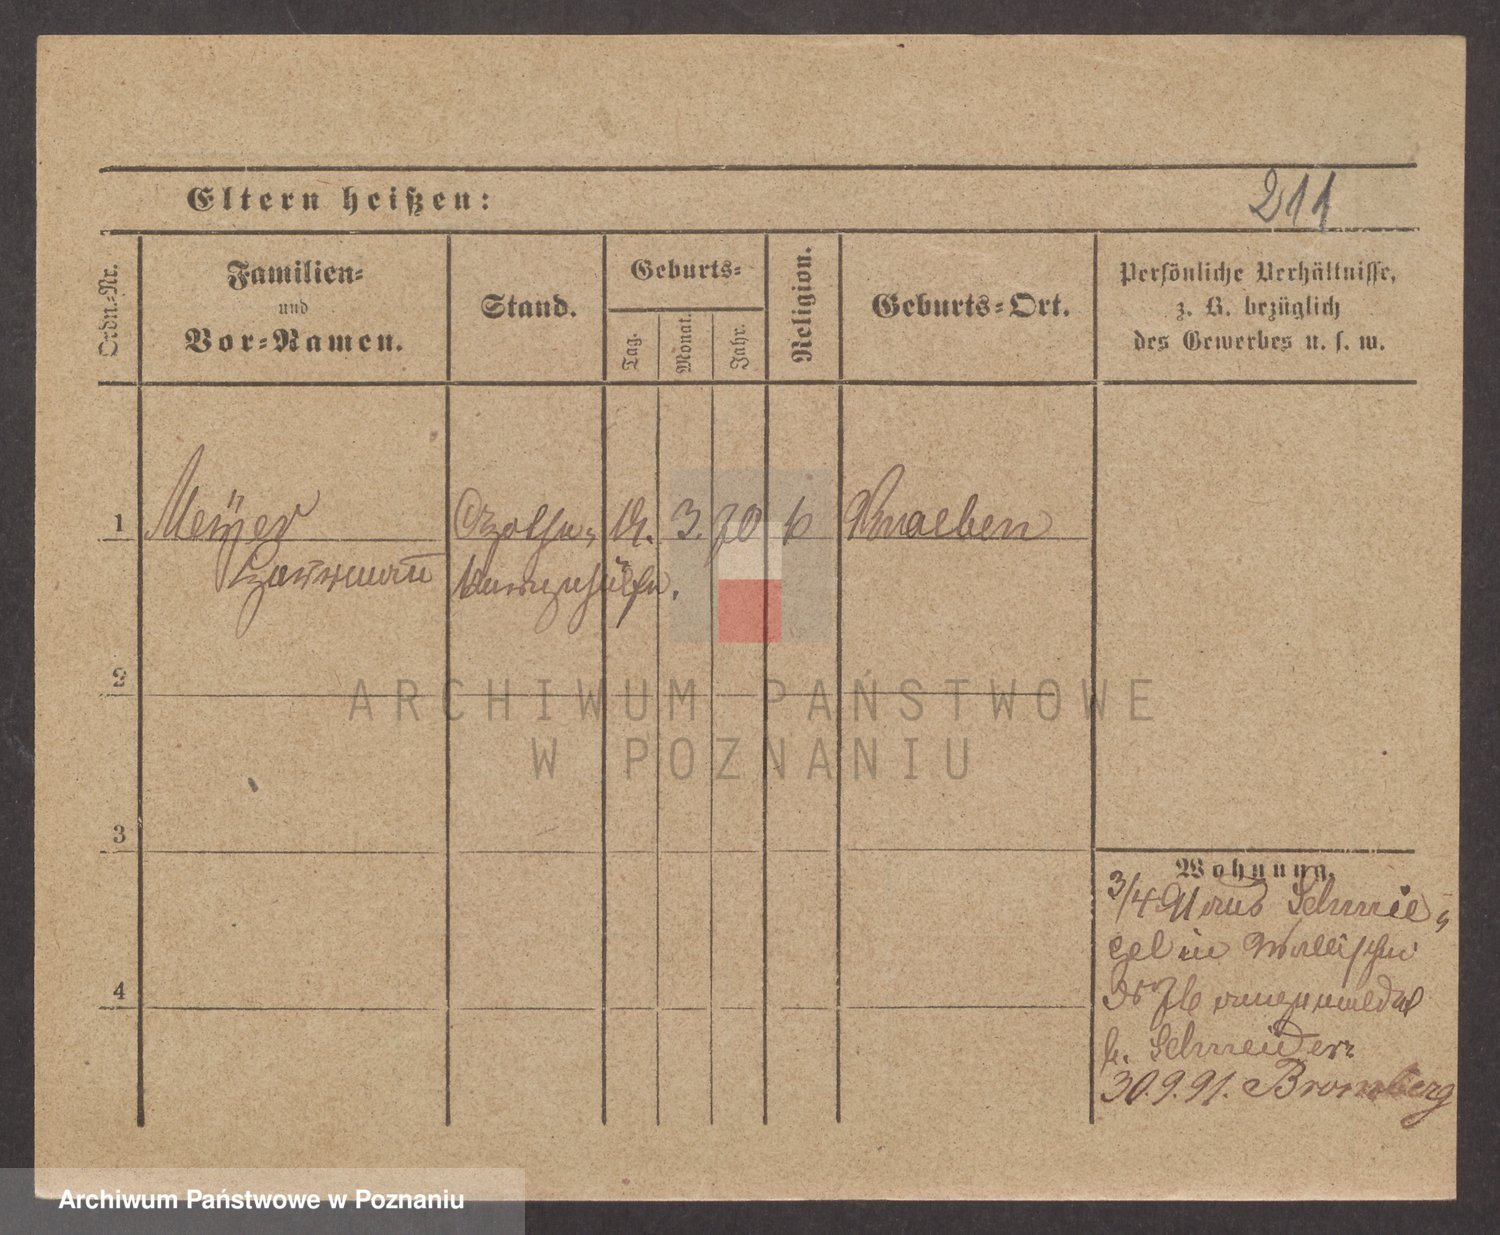 211
Eltern heißen:
Ordn.-Nr.
Familien-
und
Vor-Namen.
Stand.
Geburts-
Tag.
Monat.
Jahr.
Religion.
Geburts-Ort.
Persönliche Verhältnisse,
z. B. bezüglich
des Gewerbes u. s. w.
1
Meÿer
Herrmann
Apothe-
3. 70
2
ARCHIWUM PAŃSTWOWE
W POZNANIU
3
4
Wohnung.
3/4 91 aus Schmie-
gel in
angemeldet
b. Schneider
30.9.91. Bromberg
Archiwum Państwowe w Poznaniu